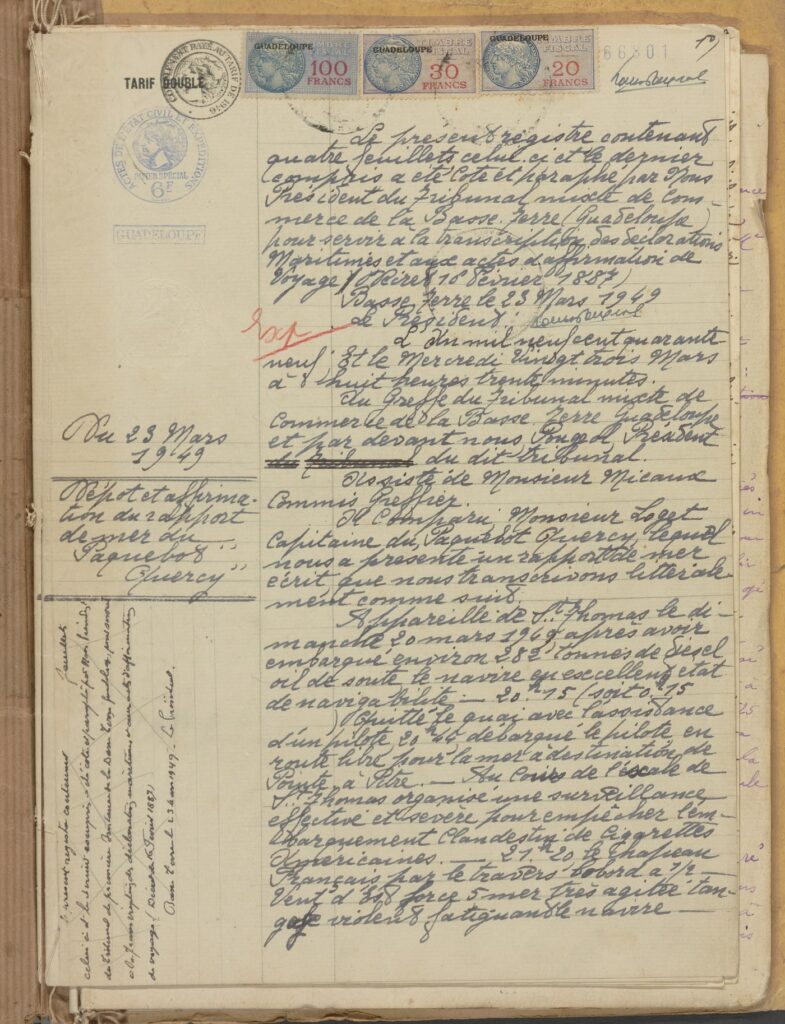 TARIF DOUBLE
COMPLEMENT PAYE AU TARIF DE 1946
GUADELOUPE
TIMBRE FISCAL
100 FRANCS
GUADELOUPE
TIMBRE FISCAL
30 FRANCS
GUADELOUPE
TIMBRE FISCAL
20 FRANCS
66801
ACTES DE L'ETAT CIVIL ET EXPEDITIONS
PAPIER SPECIAL
6F
GUADELOUPE
Le présent régistre contenant
quatre feuillets celui-ci et le dernier
compris a été coté et paraphé par Nous
Président du Tribunal mixte de Com-
merce de la Basse-Terre (Guadeloupe)
pour servir à la transcription des déclarations
Maritimes et aux actes d'affirmation de
Voyage (Décret 16 Février 1887)
Basse-Terre le 23 Mars 1949
Le Président:
Exp
L'An mil neuf cent quarante
neuf, Et le Mercredi Vingt trois Mars
à 8 huit heures trente minutes.
Au Greffe du Tribunal mixte de
Commerce de la Basse Terre Guadeloupe
et par devant nous Pougol, Président
du Tribunal du dit tribunal.
Assisté de Monsieur Micaux
Commis Greffier.
A Comparu, Monsieur
Capitaine du Paquebot Quercy, lequel
nous a présenté un rapport de mer
écrit que nous transcrivons littérale-
ment comme suit.
Appareillé de St. Thomas le di-
manche 20 mars 1949 après avoir
embarqué environ 282 tonnes de diesel
oil de soute le navire en excellent état
de navigabilité - 20h15 (soit 0h15
) Quitté le quai avec l'assistance
d'un pilote, 20h45 débarqué le pilote, en
route libre pour la mer à destination de
Pointe à Pitre. - Au cours de l'escale de
St. Thomas organisé une surveillance
effective et sévère pour empêcher l'em-
barquement Clandestin de Cigarettes
Américaines. — 21h20 le Chapeau
Français par le travers bâbord à 1/2 -
Vent d'Est force 5 mer très agitée tan-
gage violent fatiguant le navire —
Du 23 Mars
1949
Dépot et affirma-
tion du rapport
de mer du
Paquebot "
Quercy"
Le présent registre contenant feuillets
celui-ci et le dernier compris a été coté et paraphé par Nous Président
du Tribunal de première Instance de la Basse Terre
à la transcription des déclarations maritimes et aux actes d'affirmation
de voyage (Décret du 16 Février 1887)
Basse Terre le 23 mars 1949 - Le Président